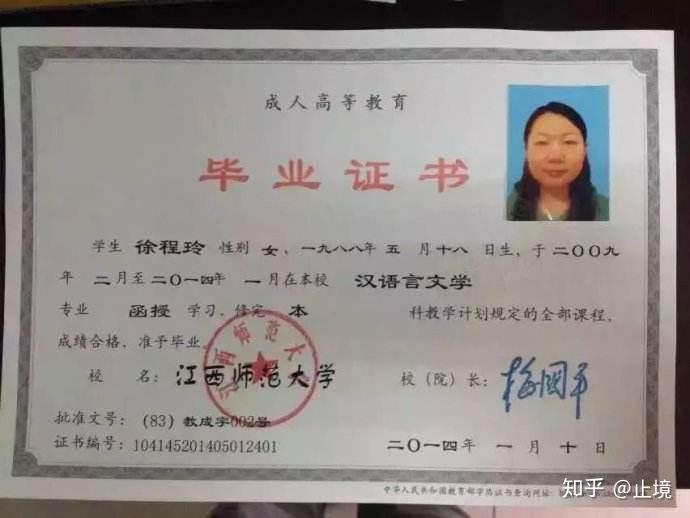 成人高等教育
毕业证书
学生 徐程玲 性别 女，一九八八年 五 月十八 日生，于 二〇〇九
年 二 月至 二〇一四年 一 月在本校 汉语言文学
专业 函授 学习，修完 本 科教学计划规定的全部课程，
成绩合格，准予毕业。
江西师范大
校 名：江西师范大学 校（院）长：梅国平
批准文号：(83) 教成字002号
证书编号：104145201405012401 二〇一四年 一 月 十 日
中华人民共和国教育部学历证书查询网址：
知乎 @止境